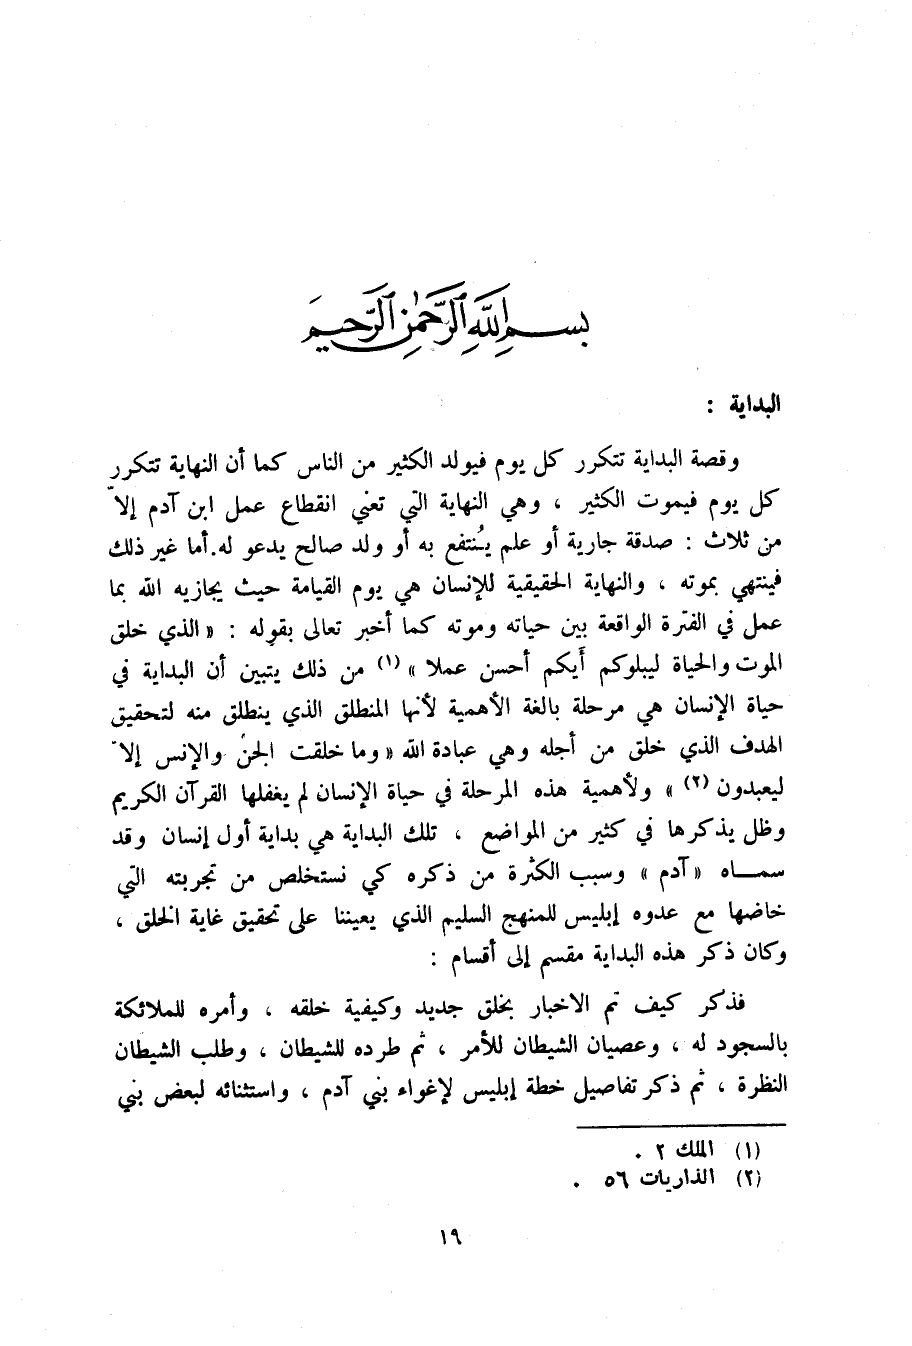 بسم الله الرحمن الرحيم
البداية :
وقصة البداية تتكرر كل يوم فيولد الكثير من الناس كما أن النهاية تتكرر
كل يوم فيموت الكثير ، وهي النهاية التي تعني انقطاع عمل ابن آدم إلاّ
من ثلاث : صدقة جارية أو علم يُنتفع به أو ولد صالح يدعو له. أما غير ذلك
فينتهي بموته ، والنهاية الحقيقية للإنسان هي يوم القيامة حيث يجازيه الله بما
عمل في الفترة الواقعة بين حياته وموته كما أخبر تعالى بقوله : « الذي خلق
الموت والحياة ليبلوكم أَيكم أحسن عملا » (١) من ذلك يتبين أن البداية في
حياة الإنسان هي مرحلة بالغة الأهمية لأنها المنطلق الذي ينطلق منه لتحقيق
الهدف الذي خلق من أجله وهي عبادة الله « وما خلقت الجنّ والإنس إلاّ
ليعبدون (٢) » ولأهمية هذه المرحلة في حياة الإنسان لم يغفلها القرآن الكريم
وظل يذكرها في كثير من المواضع ، تلك البداية هي بداية أول إنسان وقد
سمـــاه « آدم » وسبب الكثرة من ذكره كي نستخلص من تجربته التي
خاضها مع عدوه إبليس للمنهج السليم الذي يعيننا على تحقيق غاية الخلق ،
وكان ذكر هذه البداية مقسم إلى أقسام :
فذكر كيف تم الاخبار بخلق جديد وكيفية خلقه ، وأمره للملائكة
بالسجود له ، وعصيان الشيطان للأمر ، ثم طرده للشيطان ، وطلب الشيطان
النظرة ، ثم ذكر تفاصيل خطة إبليس لإغواء بني آدم ، واستثنائه لبعض بني
(١) الملك ٢ .
(٢) الذاريات ٥٦ .
١٩